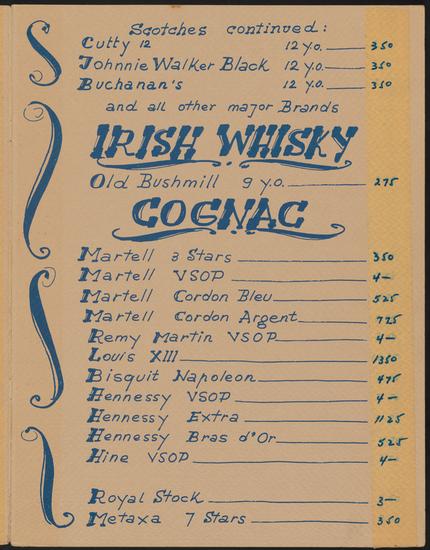 Scotches continued:
Cutty 12 12 y.o. 350
Johnnie Walker Black 12 y.o. 350
Buchanan's 12 y.o. 350
and all other major Brands
IRISH WHISKY
Old Bushmill 9 y.o. 275
COGNAC
Martell 3 Stars 350
Martell VSOP 4—
Martell Cordon Bleu 525
Martell Cordon Argent 775
Remy Martin VSOP 4—
Louis XIII 1350
Bisquit Napoleon 475
Hennessy VSOP 4—
Hennessy Extra 1125
Hennessy Bras d'Or 525
Hine VSOP 4—
Royal Stock 3—
Metaxa 7 Stars 350